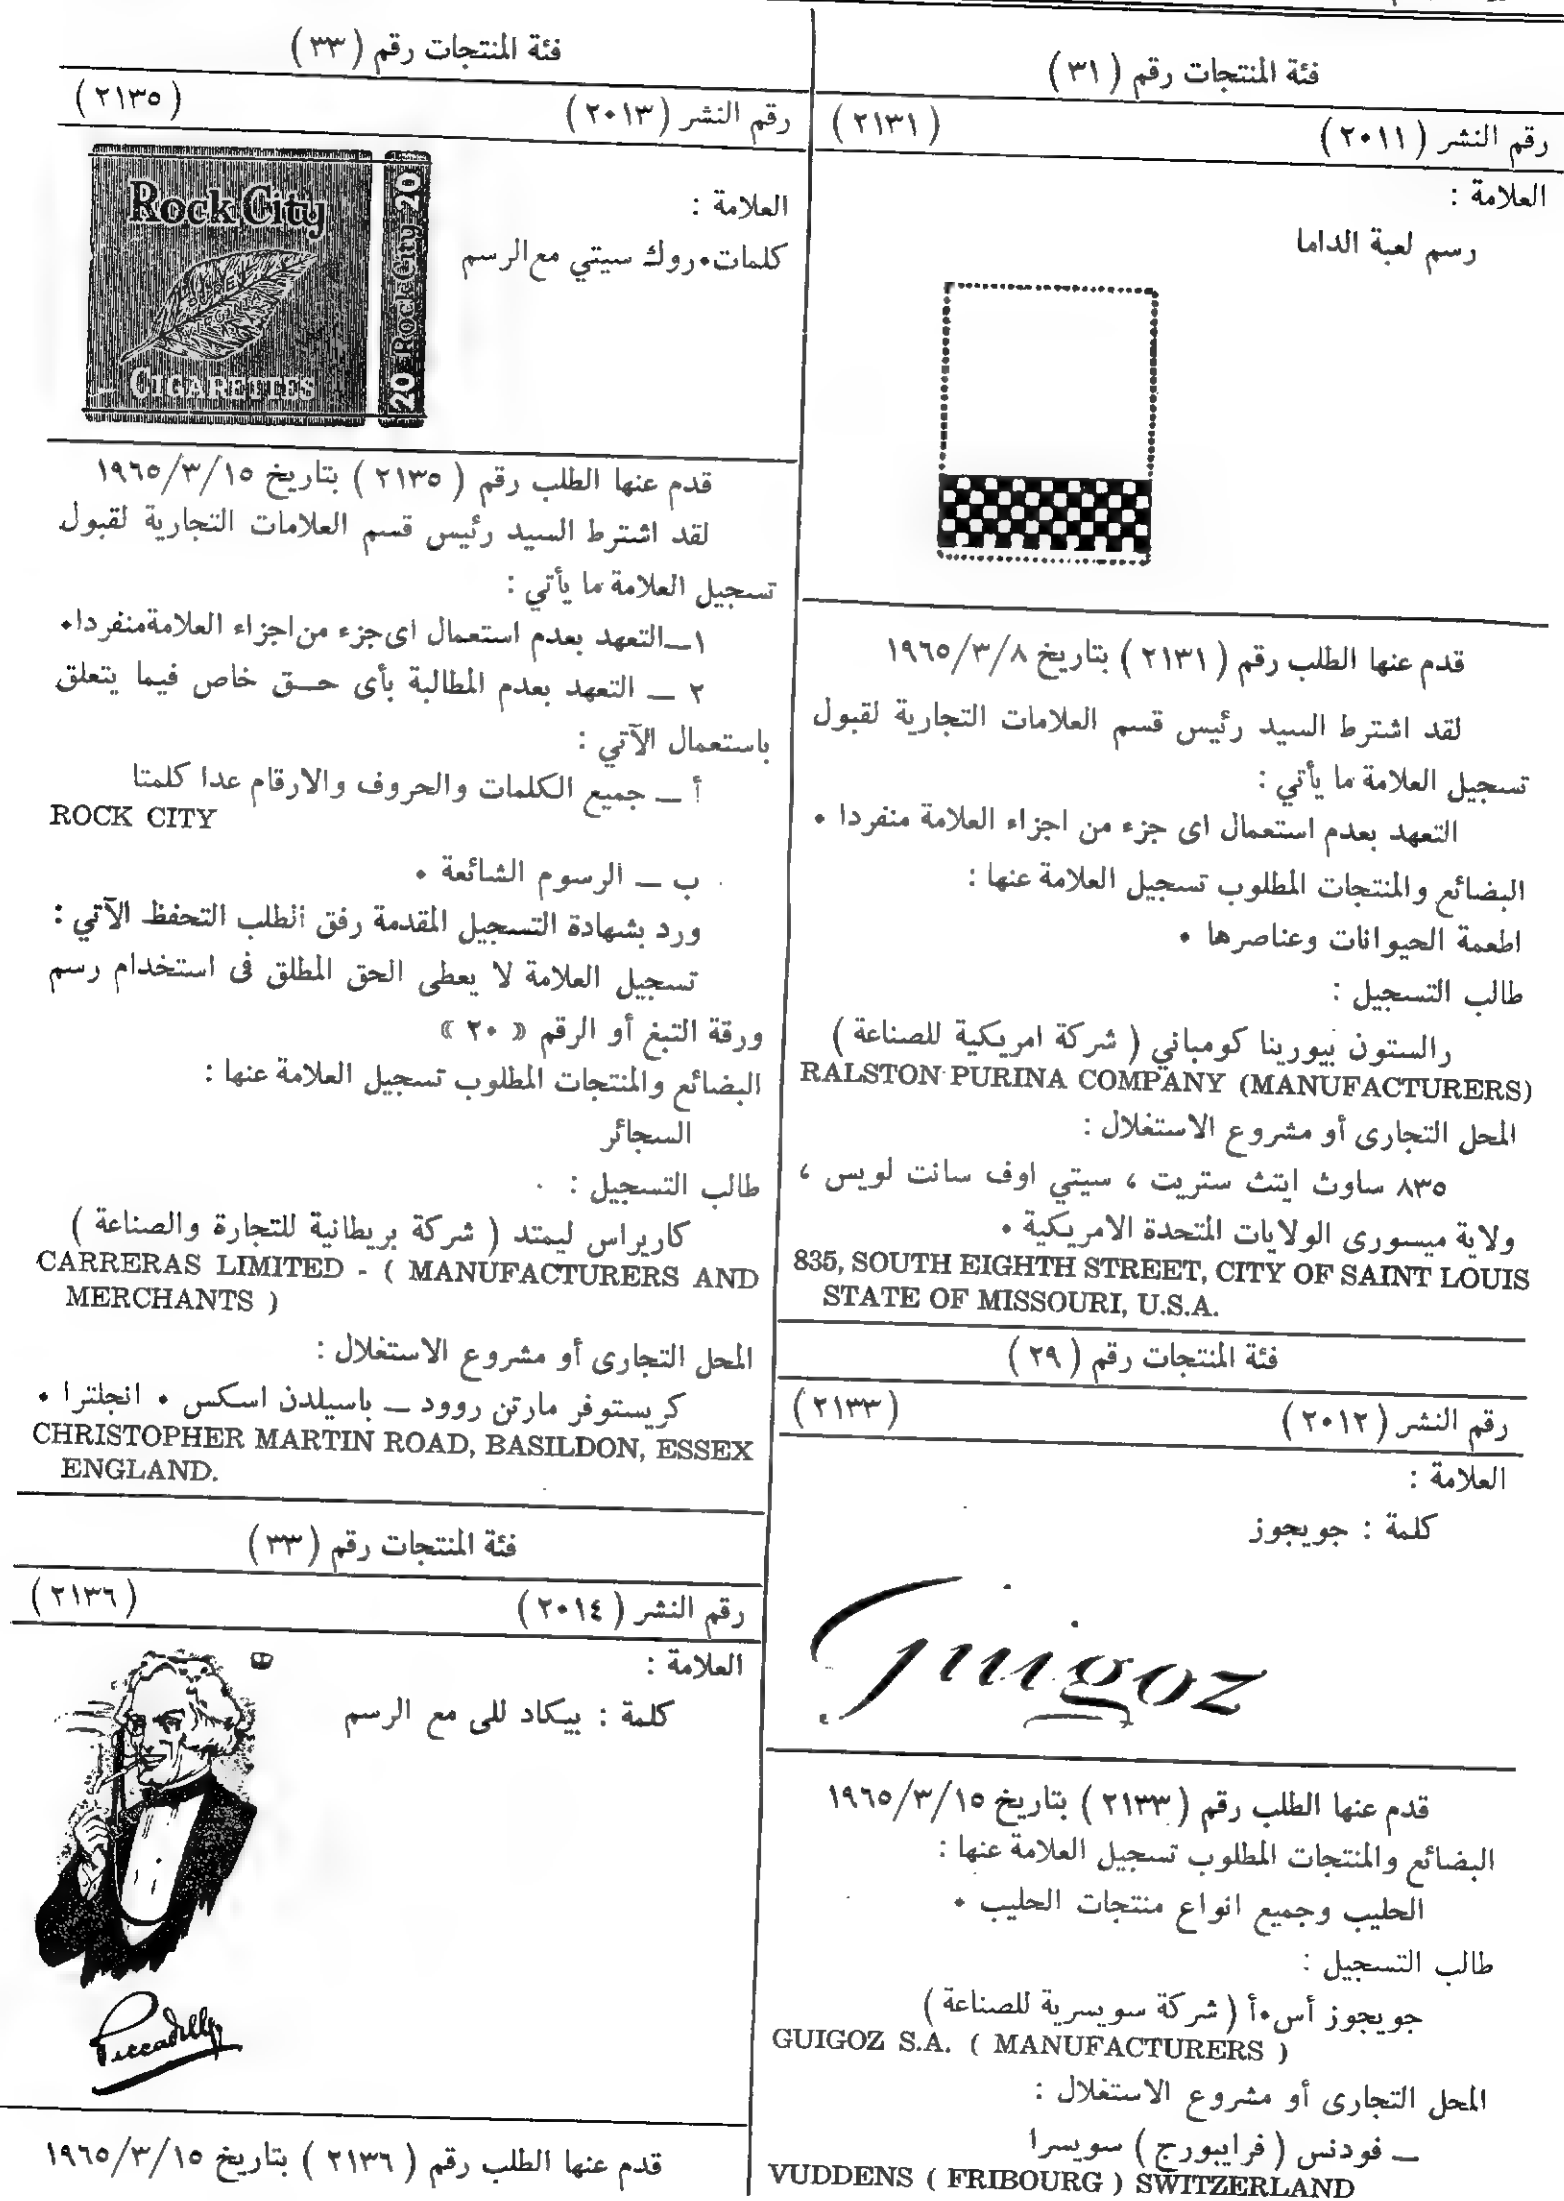 فئة المنتجات رقم ( ٣١ )
رقم النشر ( ٢٠١١ ) ( ٢١٣١ )
العلامة :
رسم لعبة الداما
قدم عنها الطلب رقم ( ٢١٣١ ) بتاريخ ١٩٦٥/٣/٨
لقد اشترط السيد رئيس قسم العلامات التجارية لقبول
تسجيل العلامة ما يأتي :
التعهد بعدم استعمال اى جزء من اجزاء العلامة منفردا •
البضائع والمنتجات المطلوب تسجيل العلامة عنها :
اطعمة الحيوانات وعناصرها •
طالب التسجيل :
رالستون بيورينا كومباني ( شركة امريكية للصناعة )
RALSTON PURINA COMPANY (MANUFACTURERS)
المحل التجارى أو مشروع الاستغلال :
٨٣٥ ساوث ايتث ستريت ، سيتي اوف سانت لويس ،
ولاية ميسورى الولايات المتحدة الامريكية •
835, SOUTH EIGHTH STREET, CITY OF SAINT LOUIS
STATE OF MISSOURI, U.S.A.
فئة المنتجات رقم ( ٢٩ )
رقم النشر ( ٢٠١٢ ) ( ٢١٣٣ )
العلامة :
كلمة : جويجوز
Guigoz
قدم عنها الطلب رقم ( ٢١٣٣ ) بتاريخ ١٩٦٥/٣/١٥
البضائع والمنتجات المطلوب تسجيل العلامة عنها :
الحليب وجميع انواع منتجات الحليب •
طالب التسجيل :
جويجوز أس•أ ( شركة سويسرية للصناعة )
GUIGOZ S.A. ( MANUFACTURERS )
المحل التجارى أو مشروع الاستغلال :
— فودنس ( فرايبورج ) سويسرا
VUDDENS ( FRIBOURG ) SWITZERLAND
فئة المنتجات رقم ( ٣٣ )
رقم النشر ( ٢٠١٣ ) ( ٢١٣٥ )
العلامة :
كلمات•روك سيتي مع الرسم
Rock City
SUPER
VIRGINIA
CIGARETTES
20 Rock City 20
قدم عنها الطلب رقم ( ٢١٣٥ ) بتاريخ ١٩٦٥/٣/١٥
لقد اشترط السيد رئيس قسم العلامات التجارية لقبول
تسجيل العلامة ما يأتي :
١—التعهد بعدم استعمال اى جزء من اجزاء العلامة منفردا•
٢ — التعهد بعدم المطالبة بأى حـــق خاص فيما يتعلق
باستعمال الآتي :
أ — جميع الكلمات والحروف والارقام عدا كلمتا
ROCK CITY
ب — الرسوم الشائعة •
ورد بشهادة التسجيل المقدمة رفق الطلب التحفظ الآتي :
تسجيل العلامة لا يعطى الحق المطلق فى استخدام رسم
ورقة التبغ أو الرقم « ٢٠ »
البضائع والمنتجات المطلوب تسجيل العلامة عنها :
السجائر
طالب التسجيل :
كاريراس ليمتد ( شركة بريطانية للتجارة والصناعة )
CARRERAS LIMITED - ( MANUFACTURERS AND
MERCHANTS )
المحل التجارى أو مشروع الاستغلال :
كريستوفر مارتن روود — باسيلدن اسكس • انجلترا •
CHRISTOPHER MARTIN ROAD, BASILDON, ESSEX
ENGLAND.
فئة المنتجات رقم ( ٣٣ )
رقم النشر ( ٢٠١٤ ) ( ٢١٣٦ )
العلامة :
كلمة : بيكاد للى مع الرسم
Piccadilly
قدم عنها الطلب رقم ( ٢١٣٦ ) بتاريخ ١٩٦٥/٣/١٥